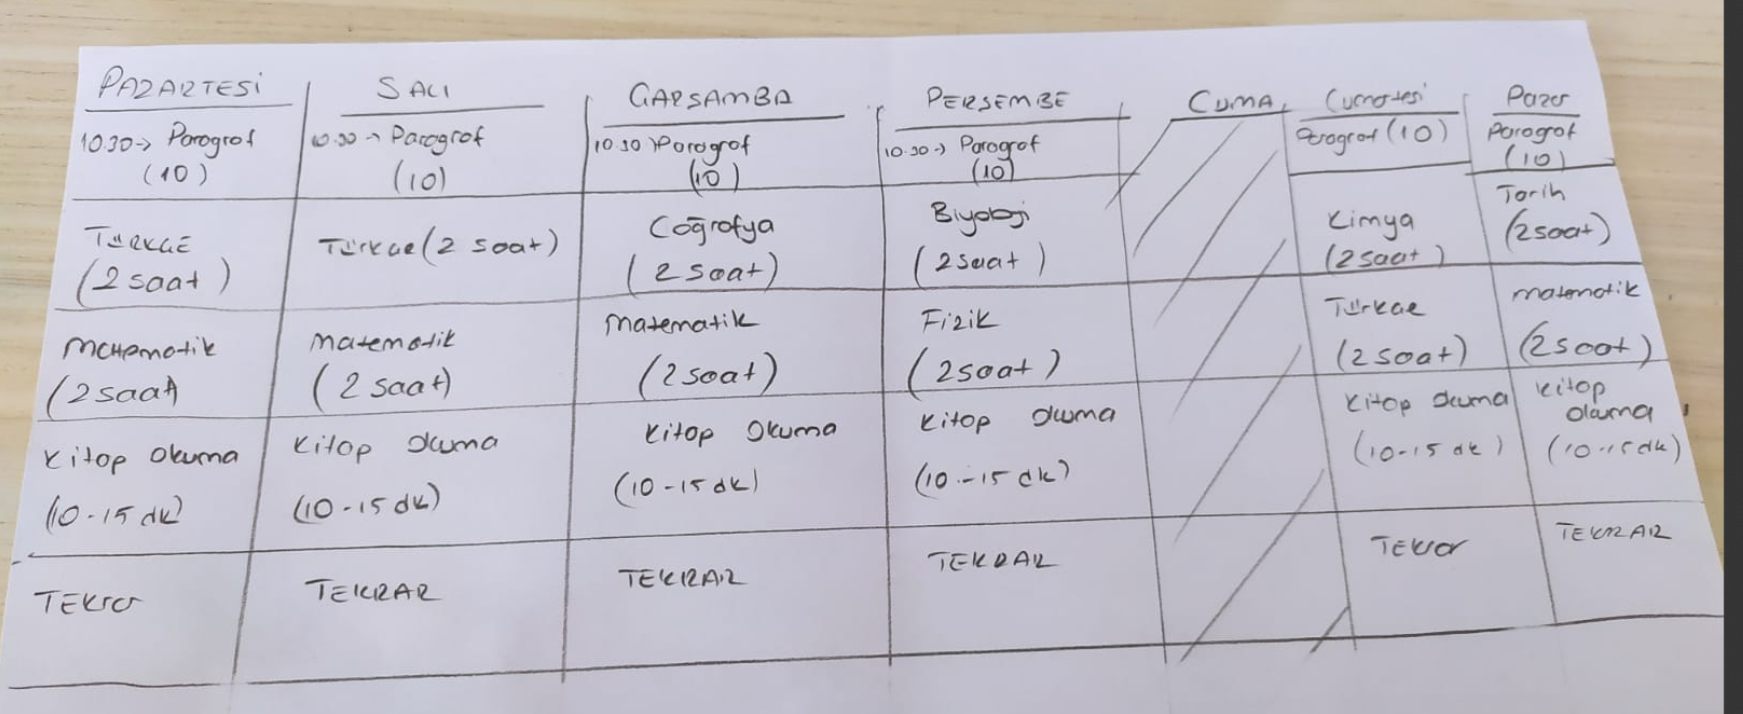 PAZARTESİ
10.30-> Paragraf
(10)
TÜRKÇE
(2 saat)
Matematik
(2 saat)
Kitap Okuma
(10-15 dk)
TEKrar
SALI
10.30 -> Paragraf
(10)
Türkçe (2 saat)
Matematik
(2 saat)
Kitap Okuma
(10-15 dk)
TEKRAR
ÇARŞAMBA
10.30 Paragraf
(10)
Coğrafya
(2 saat)
Matematik
(2 saat)
Kitap Okuma
(10-15 dk)
TEKRAR
PERSEMBE
10.30-> Paragraf
(10)
Biyoloji
(2 saat)
Fizik
(2 saat)
Kitap Okuma
(10-15 dk)
TEKRAR
CUMA
Cumartesi
Paragraf (10)
Kimya
(2 saat)
Türkçe
(2 saat)
Kitap Okuma
(10-15 dk)
TEKrar
Pazar
Paragraf
(10)
Tarih
(2 saat)
Matematik
(2 saat)
Kitap
okuma
(10-15 dk)
TEKRAR